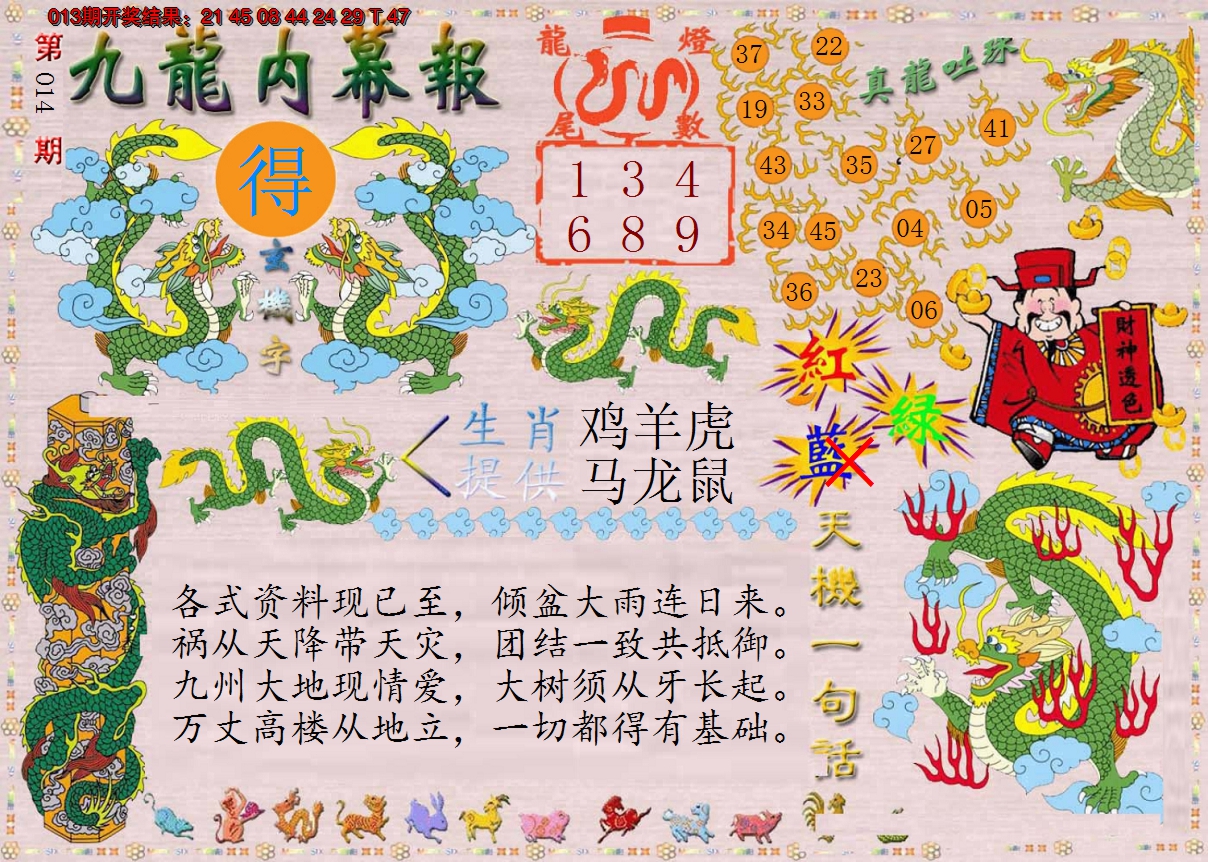 013期开奖结果：21 45 06 44 24 29 T 47
第014期
九龍内幕報
得
玄機字
龍燈尾數
1 3 4
6 8 9
真龍吐珠
37 22
19 33
43 35 27 41
34 45 04 05
36 23 06
紅
綠
藍
財神透色
生肖 鸡羊虎
提供 马龙鼠
天機一句话
各式资料现已至，倾盆大雨连日来。
祸从天降带天灾，团结一致共抵御。
九州大地现情爱，大树须从牙长起。
万丈高楼从地立，一切都得有基础。